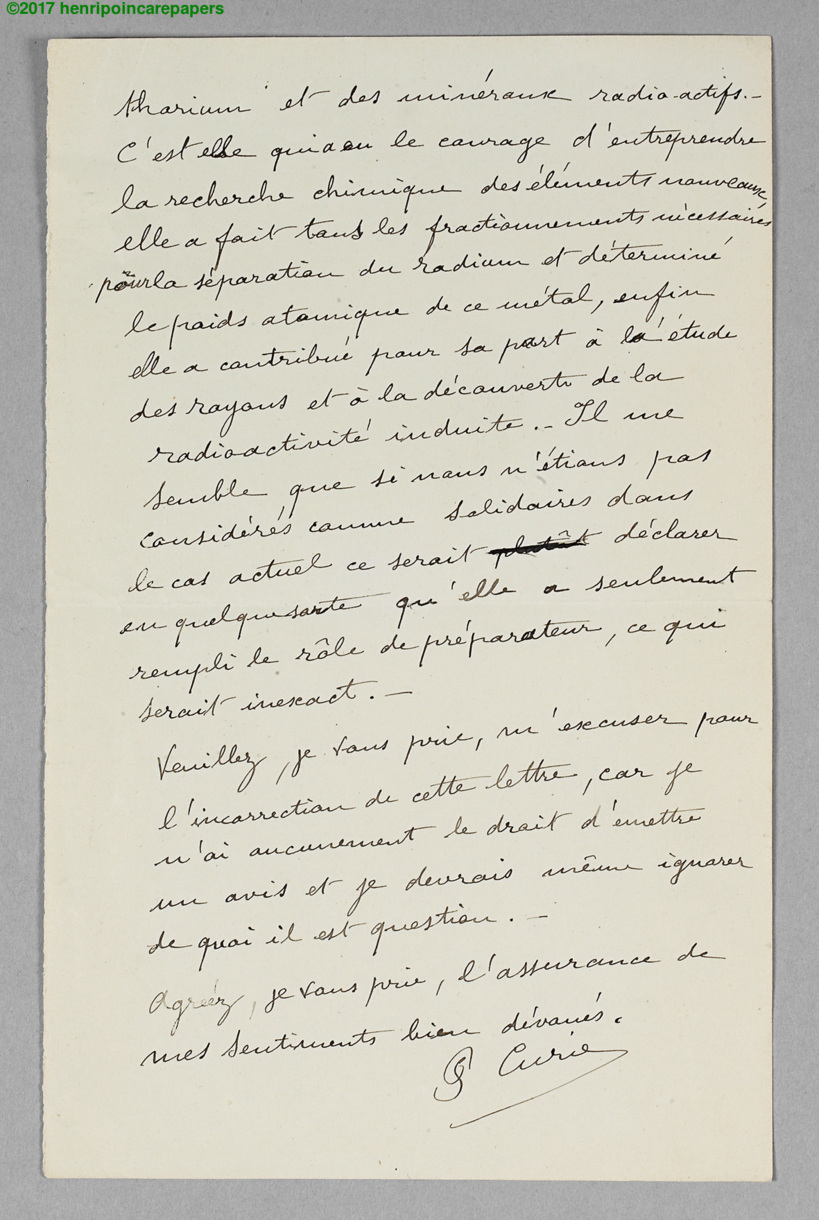 ©2017 henripoincarepapers
thorium et des minéraux radio-actifs.-
C'est elle qui a eu le courage d'entreprendre
la recherche chimique des éléments nouveaux
elle a fait tous les fractionnements nécessaires
pour la séparation du radium et déterminé
le poids atomique de ce métal, enfin
elle a contribué pour sa part à l'étude
des rayons et à la découverte de la
radioactivité induite.- Il me
semble que si nous n'étions pas
considérés comme solidaires dans
le cas actuel ce serait plutôt déclarer
en quelque sorte qu'elle a seulement
rempli le rôle de préparateur, ce qui
serait inexact.-
Veuillez, je vous prie, m'excuser pour
l'incorrection de cette lettre, car je
n'ai aucunement le droit d'émettre
un avis et je devrais même ignorer
de quoi il est question.-
Agréez, je vous prie, l'assurance de
mes sentiments bien dévoués.
P Curie